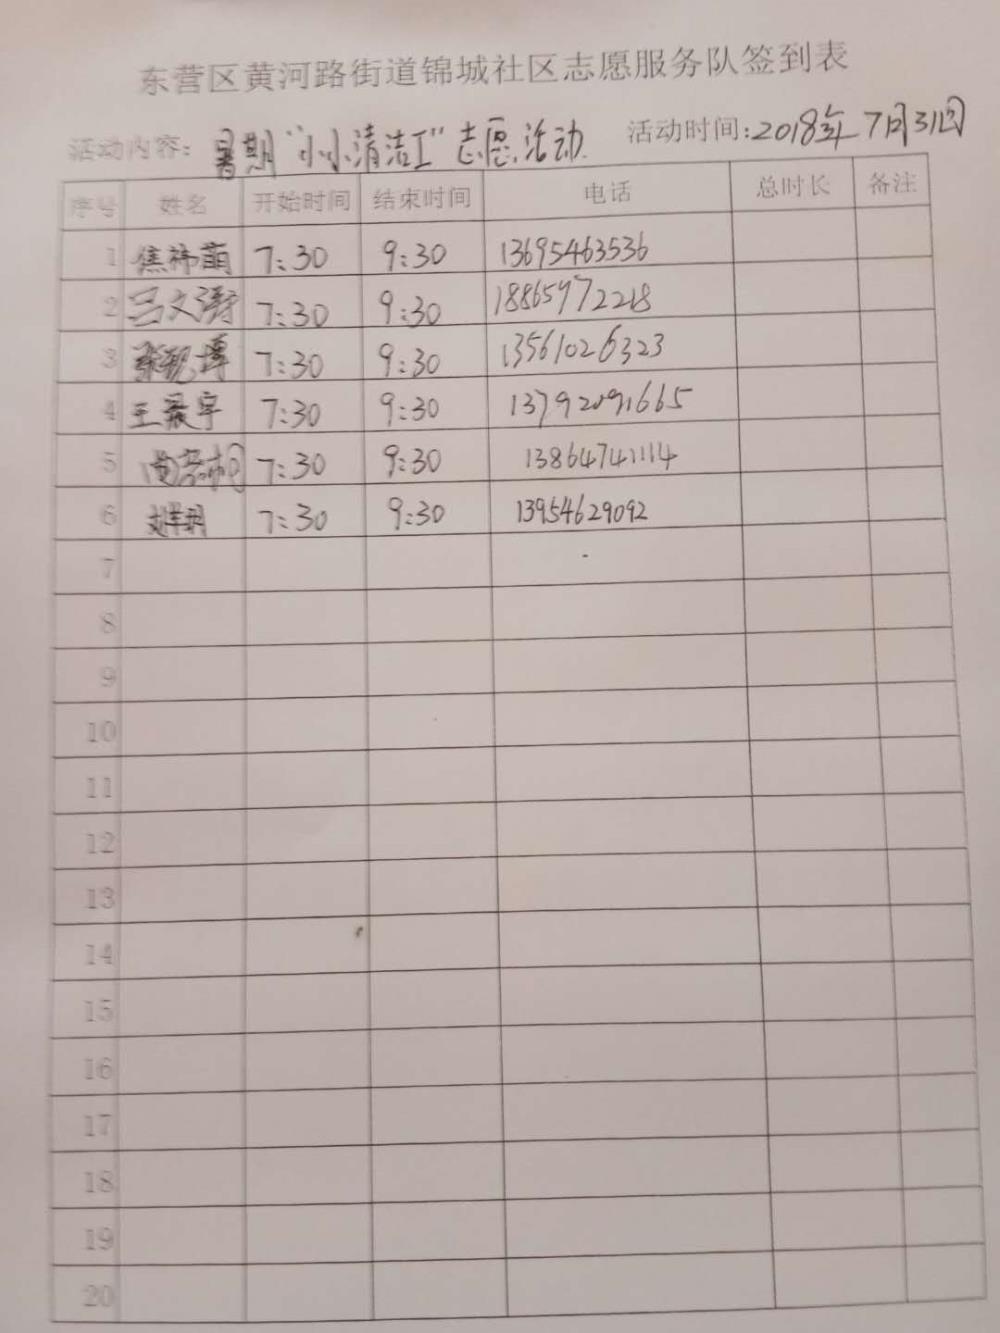 东营区黄河路街道锦城社区志愿服务队签到表
活动内容: 暑期“小小清洁工”志愿活动. 活动时间:2018年7月31日
序号 姓名 开始时间 结束时间 电话 总时长 备注
1 焦祎萌 7:30 9:30 13695463536
2 吕文 7:30 9:30 18865972218
3 张 博 7:30 9:30 13561026323
4 王晨宇 7:30 9:30 13792091665
5 7:30 9:30 13864741114
6 7:30 9:30 13954629092
7
8
9
10
11
12
13
14
15
16
17
18
19
20